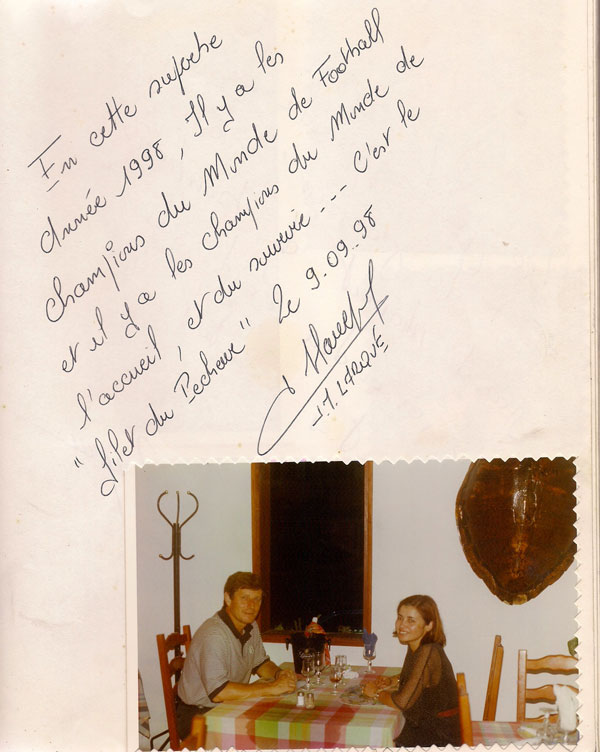 En cette superbe
année 1998, Il y a les
champions du Monde de Football
et il y a les champions du Monde de
l'accueil, et du sourire --- C'est le
"Filet du Pecheur" Le 9.09.98
J.M. LARQUE